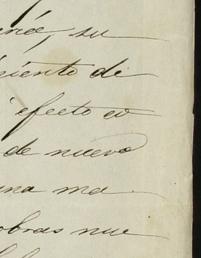 su
miento de
efecto co
de nuevo
una ma
obras nue